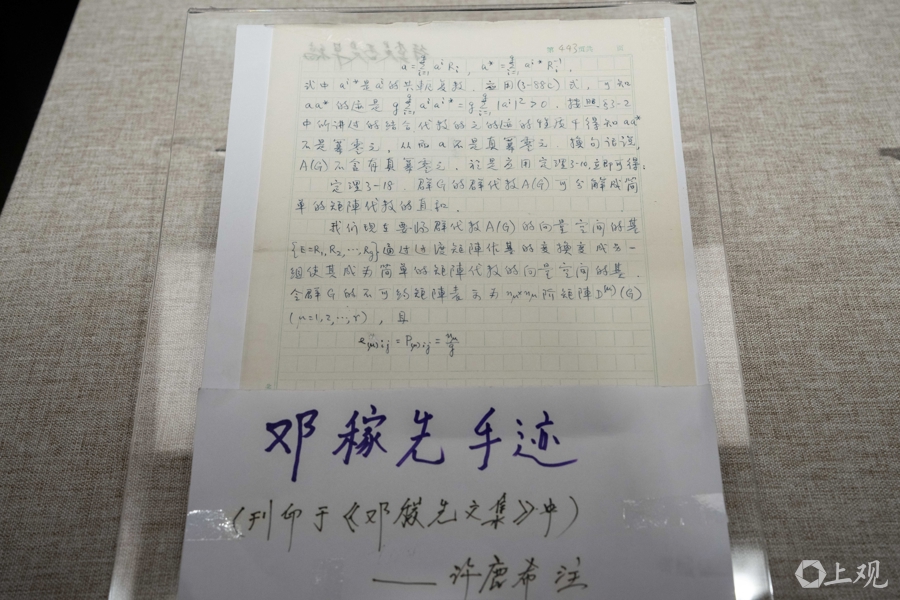 第 443 页
a = Σ_{i=1}^{g} a^i R_i , a* = Σ_{i=1}^{g} a^{i*} R_i^{-1} .
式中 a^{i*} 是 a^i 的共轭复数. 应用(3-88c)式, 可知
aa* 的迹是 g Σ_{i=1}^{g} a^i a^{i*} = g Σ_{i=1}^{g} |a^i|² > 0. 按照§3-2
中所讲过的结合代数的元的迹的性质手得知 aa*
不是幂零元, 从而 a 不是真幂零元. 换句话说,
A(G) 不含有真幂零元. 于是应用定理3-10,立即可得:
定理3-18. 群G的群代数A(G)可分解成简
单的矩阵代数的直和.
我们现在要将群代数A(G)的向量空间的基
{E=R₁, R₂, …, R_g}通过过渡矩阵作基的变换变成另一
组使其成为简单的矩阵代数的向量空间的基.
令群G的不可约矩阵表示为 n_μ×n_μ 阶矩阵 D^{(μ)}(G)
(μ=1,2,…,r) , 且
e_{(μ)ij} = P_{(μ)ij} = n_μ/g
邓稼先手迹
(刊印于《邓稼先文集》中)
——许鹿希 注
上观